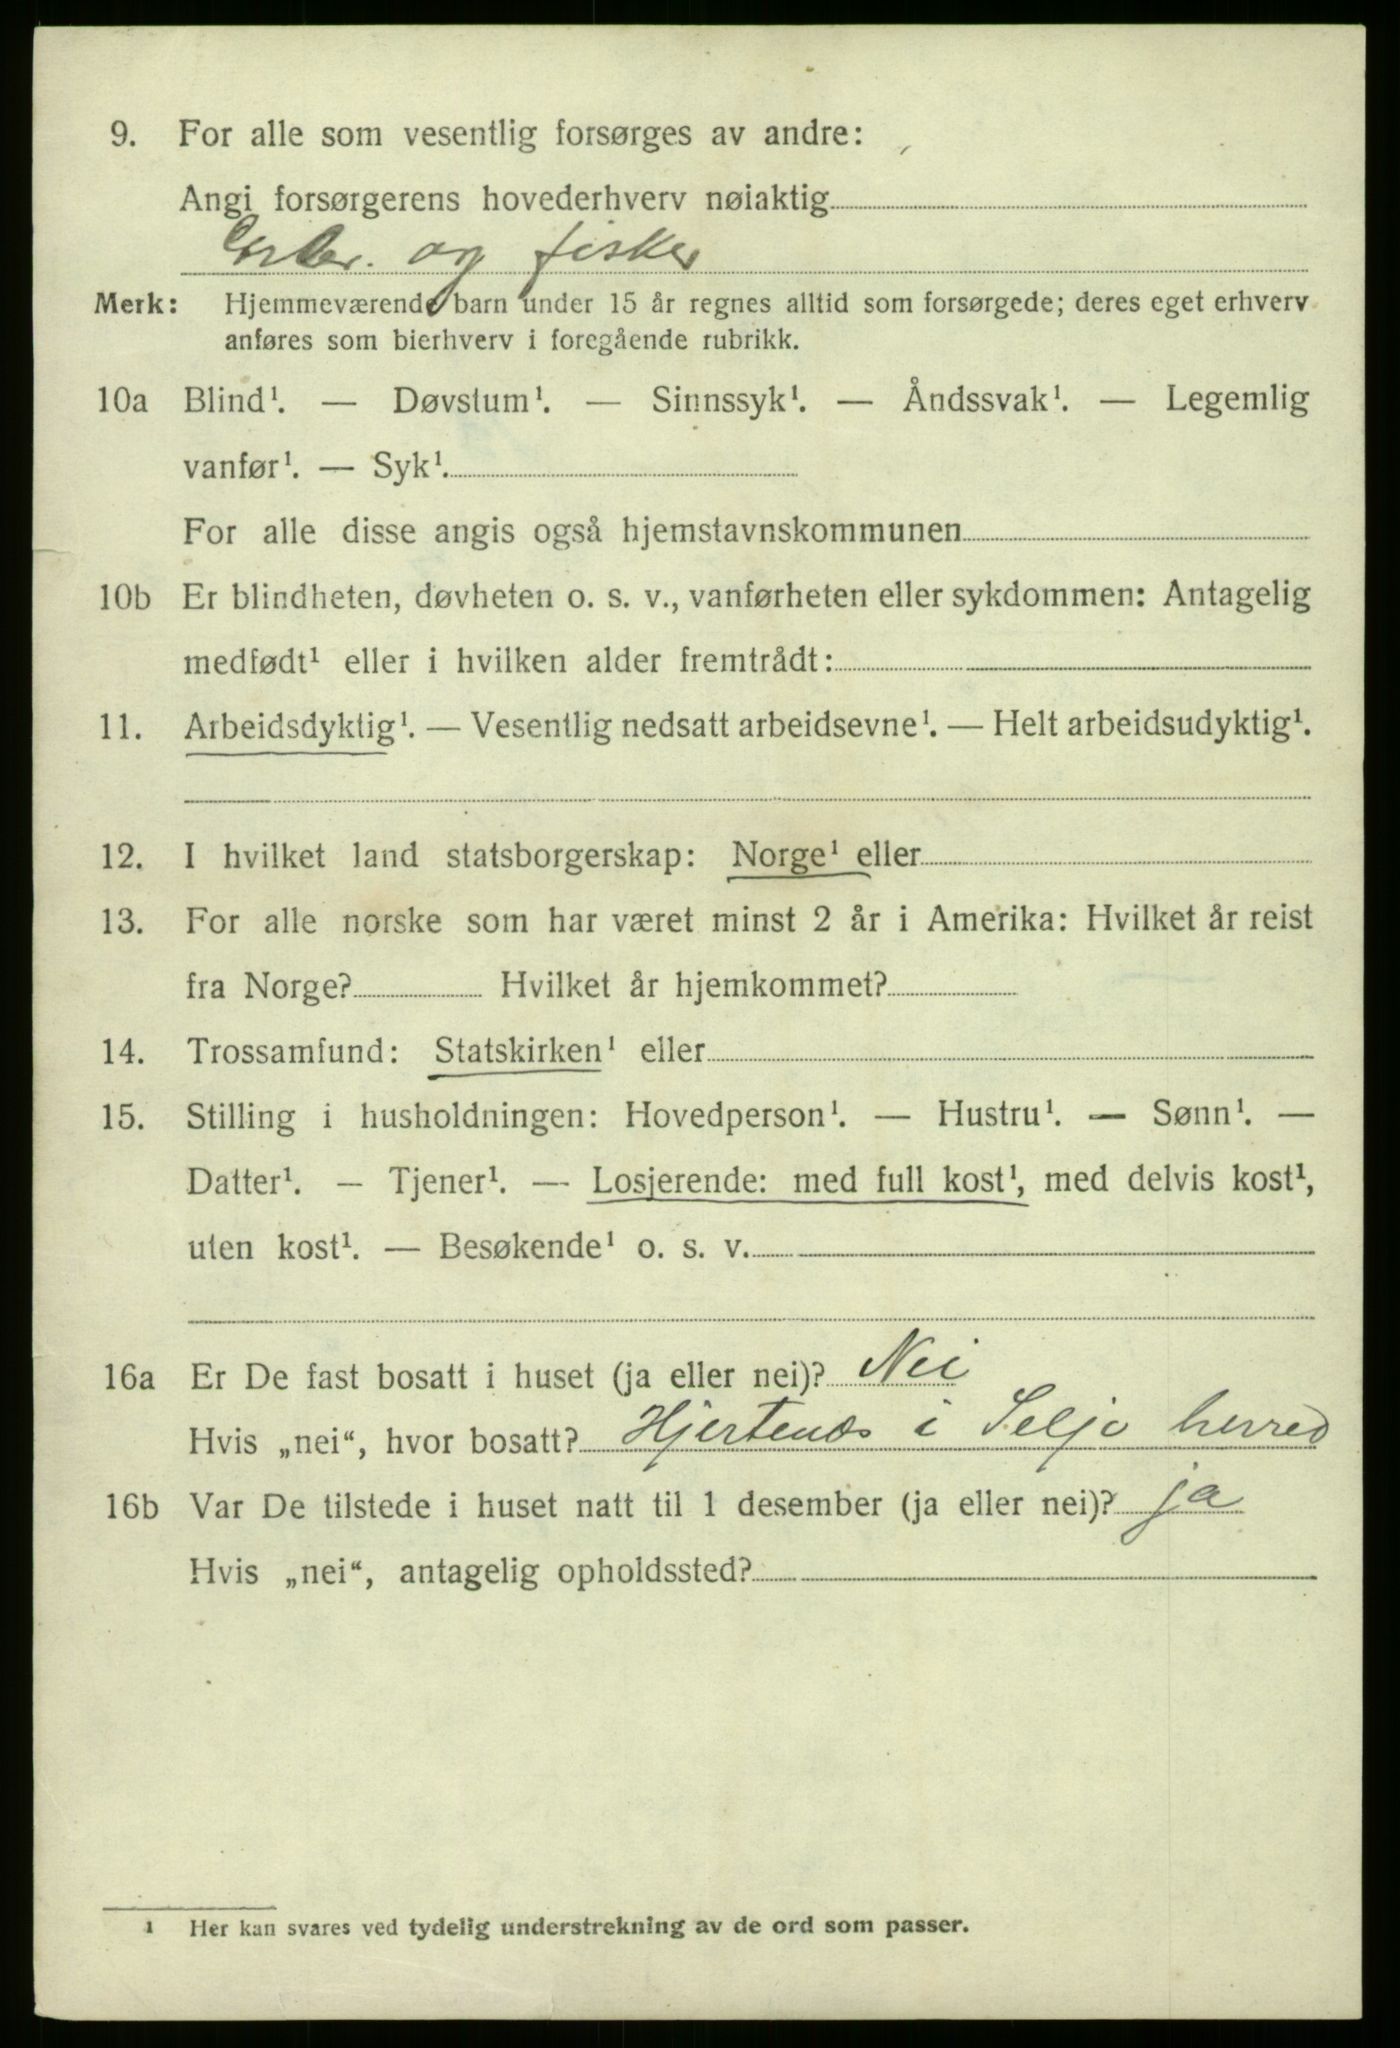 9. For alle som vesentlig forsørges av andre:
Angi forsørgerens hovederhverv nøiaktig
og fisker
Merk: Hjemmeværende barn under 15 år regnes alltid som forsørgede; deres eget erhverv
anføres som bierhverv i foregående rubrikk.
10a Blind¹. — Døvstum¹. — Sinnssyk¹. — Åndssvak¹. — Legemlig
vanfør¹. — Syk¹.
For alle disse angis også hjemstavnskommunen
10b Er blindheten, døvheten o. s. v., vanførheten eller sykdommen: Antagelig
medfødt¹ eller i hvilken alder fremtrådt:
11. Arbeidsdyktig¹. — Vesentlig nedsatt arbeidsevne¹. — Helt arbeidsudyktig¹.
12. I hvilket land statsborgerskap: Norge¹ eller
13. For alle norske som har været minst 2 år i Amerika: Hvilket år reist
fra Norge? Hvilket år hjemkommet?
14. Trossamfund: Statskirken¹ eller
15. Stilling i husholdningen: Hovedperson¹. — Hustru¹. — Sønn¹. —
Datter¹. — Tjener¹. — Losjerende: med full kost¹, med delvis kost¹,
uten kost¹. — Besøkende¹ o. s. v.
16a Er De fast bosatt i huset (ja eller nei)? Nei
Hvis „nei“, hvor bosatt? Hjertenæs i Selje herred
16b Var De tilstede i huset natt til 1 desember (ja eller nei)? ja
Hvis „nei“, antagelig opholdssted?
¹ Her kan svares ved tydelig understrekning av de ord som passer.